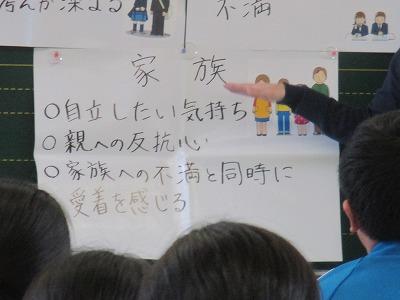 不満
家族
○自立したい気持ち
○親への反抗心
○家族への不満と同時に
受着を感じる